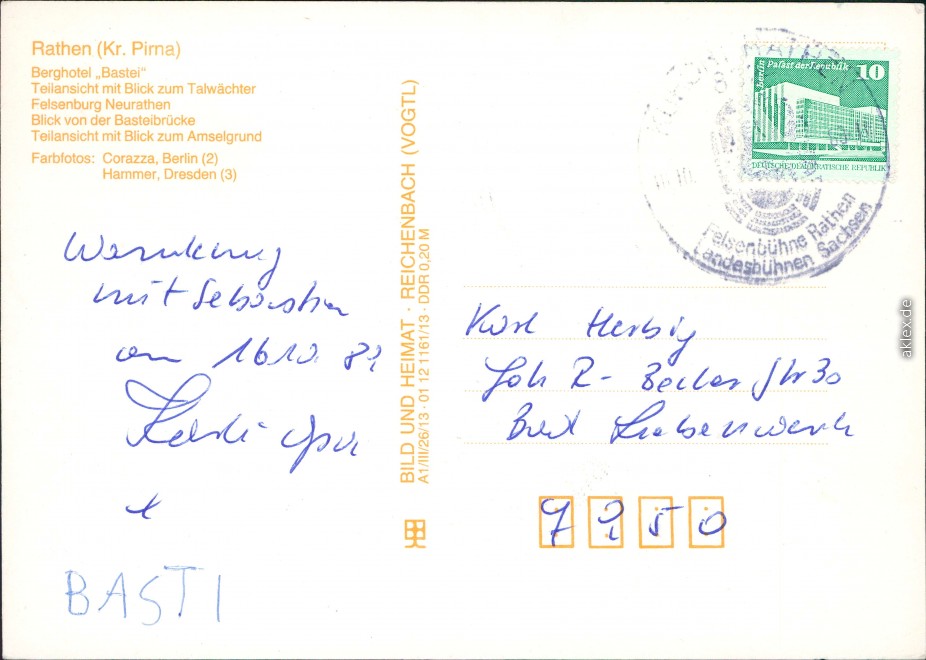 Rathen (Kr. Pirna)
Berghotel „Bastei“
Teilansicht mit Blick zum Talwächter
Felsenburg Neurathen
Blick von der Basteibrücke
Teilansicht mit Blick zum Amselgrund
Farbfotos: Corazza, Berlin (2)
Hammer, Dresden (3)
Wanderung
mit Sebastian
am 16.10.
BASTI
BILD UND HEIMAT · REICHENBACH (VOGTL)
A1/III/26/13 · 01 12 1161/13 · DDR 0,20 M
Berlin Palast der Republik 10
DEUTSCHE DEMOKRATISCHE REPUBLIK
KURORT RATHEN
Felsenbühne Rathen
Landesbühnen Sachsen
Karl Herbig
Joh R- Becher Str 30
Bad Liebenwerda
7950
aklex.de